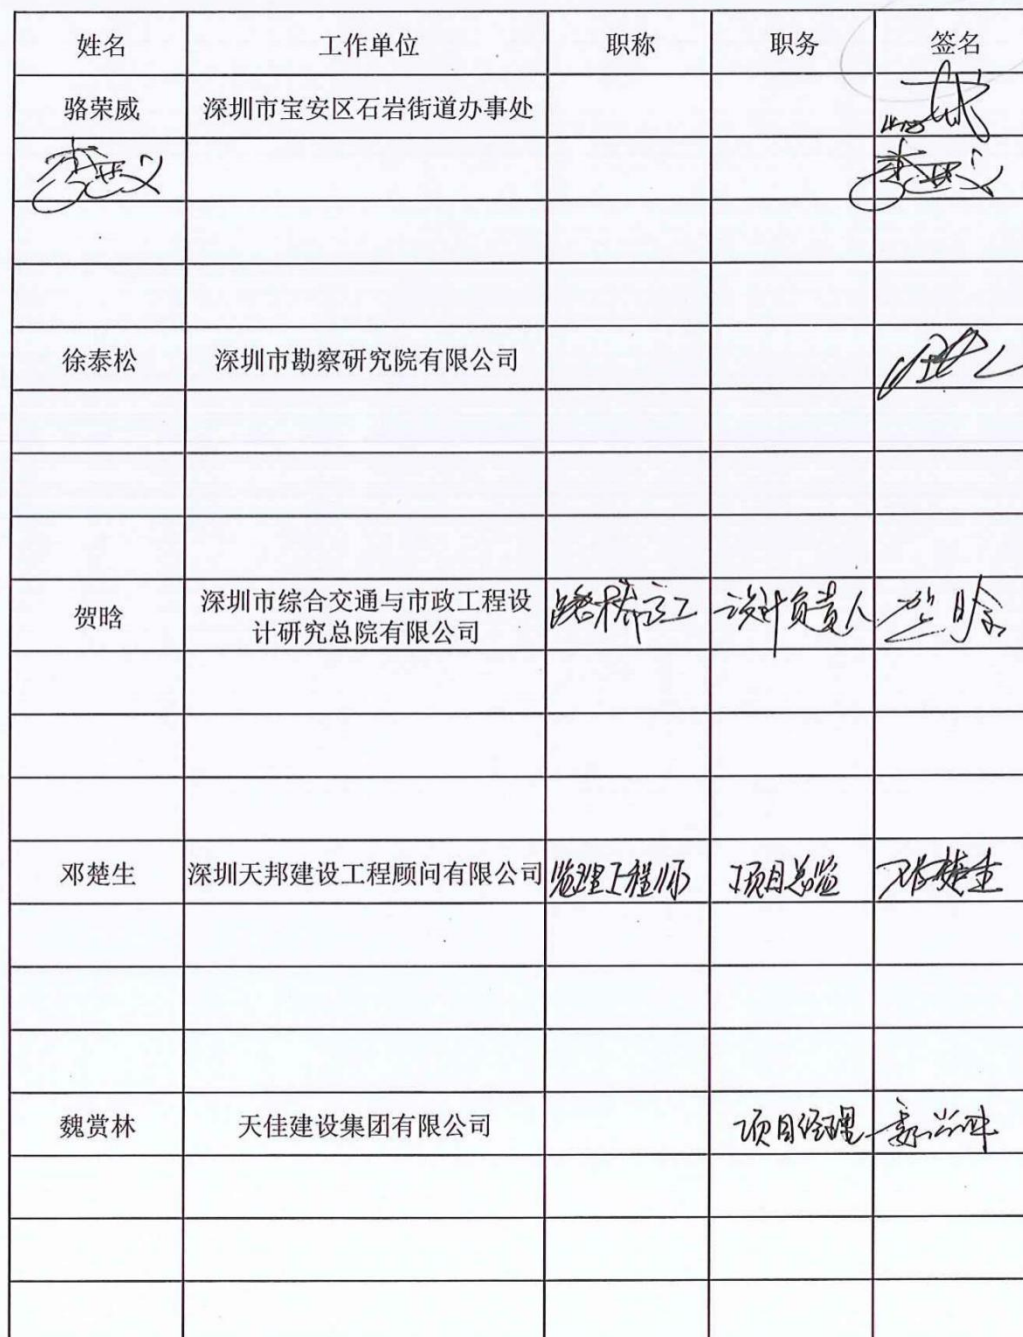 姓名 工作单位 职称 职务 签名
骆荣威 深圳市宝安区石岩街道办事处
徐泰松 深圳市勘察研究院有限公司
贺晗 深圳市综合交通与市政工程设 路桥高工 设计负责人 贺晗
计研究总院有限公司
邓楚生 深圳天邦建设工程顾问有限公司 监理工程师 项目总监 邓楚生
魏赏林 天佳建设集团有限公司 项目经理 魏赏林